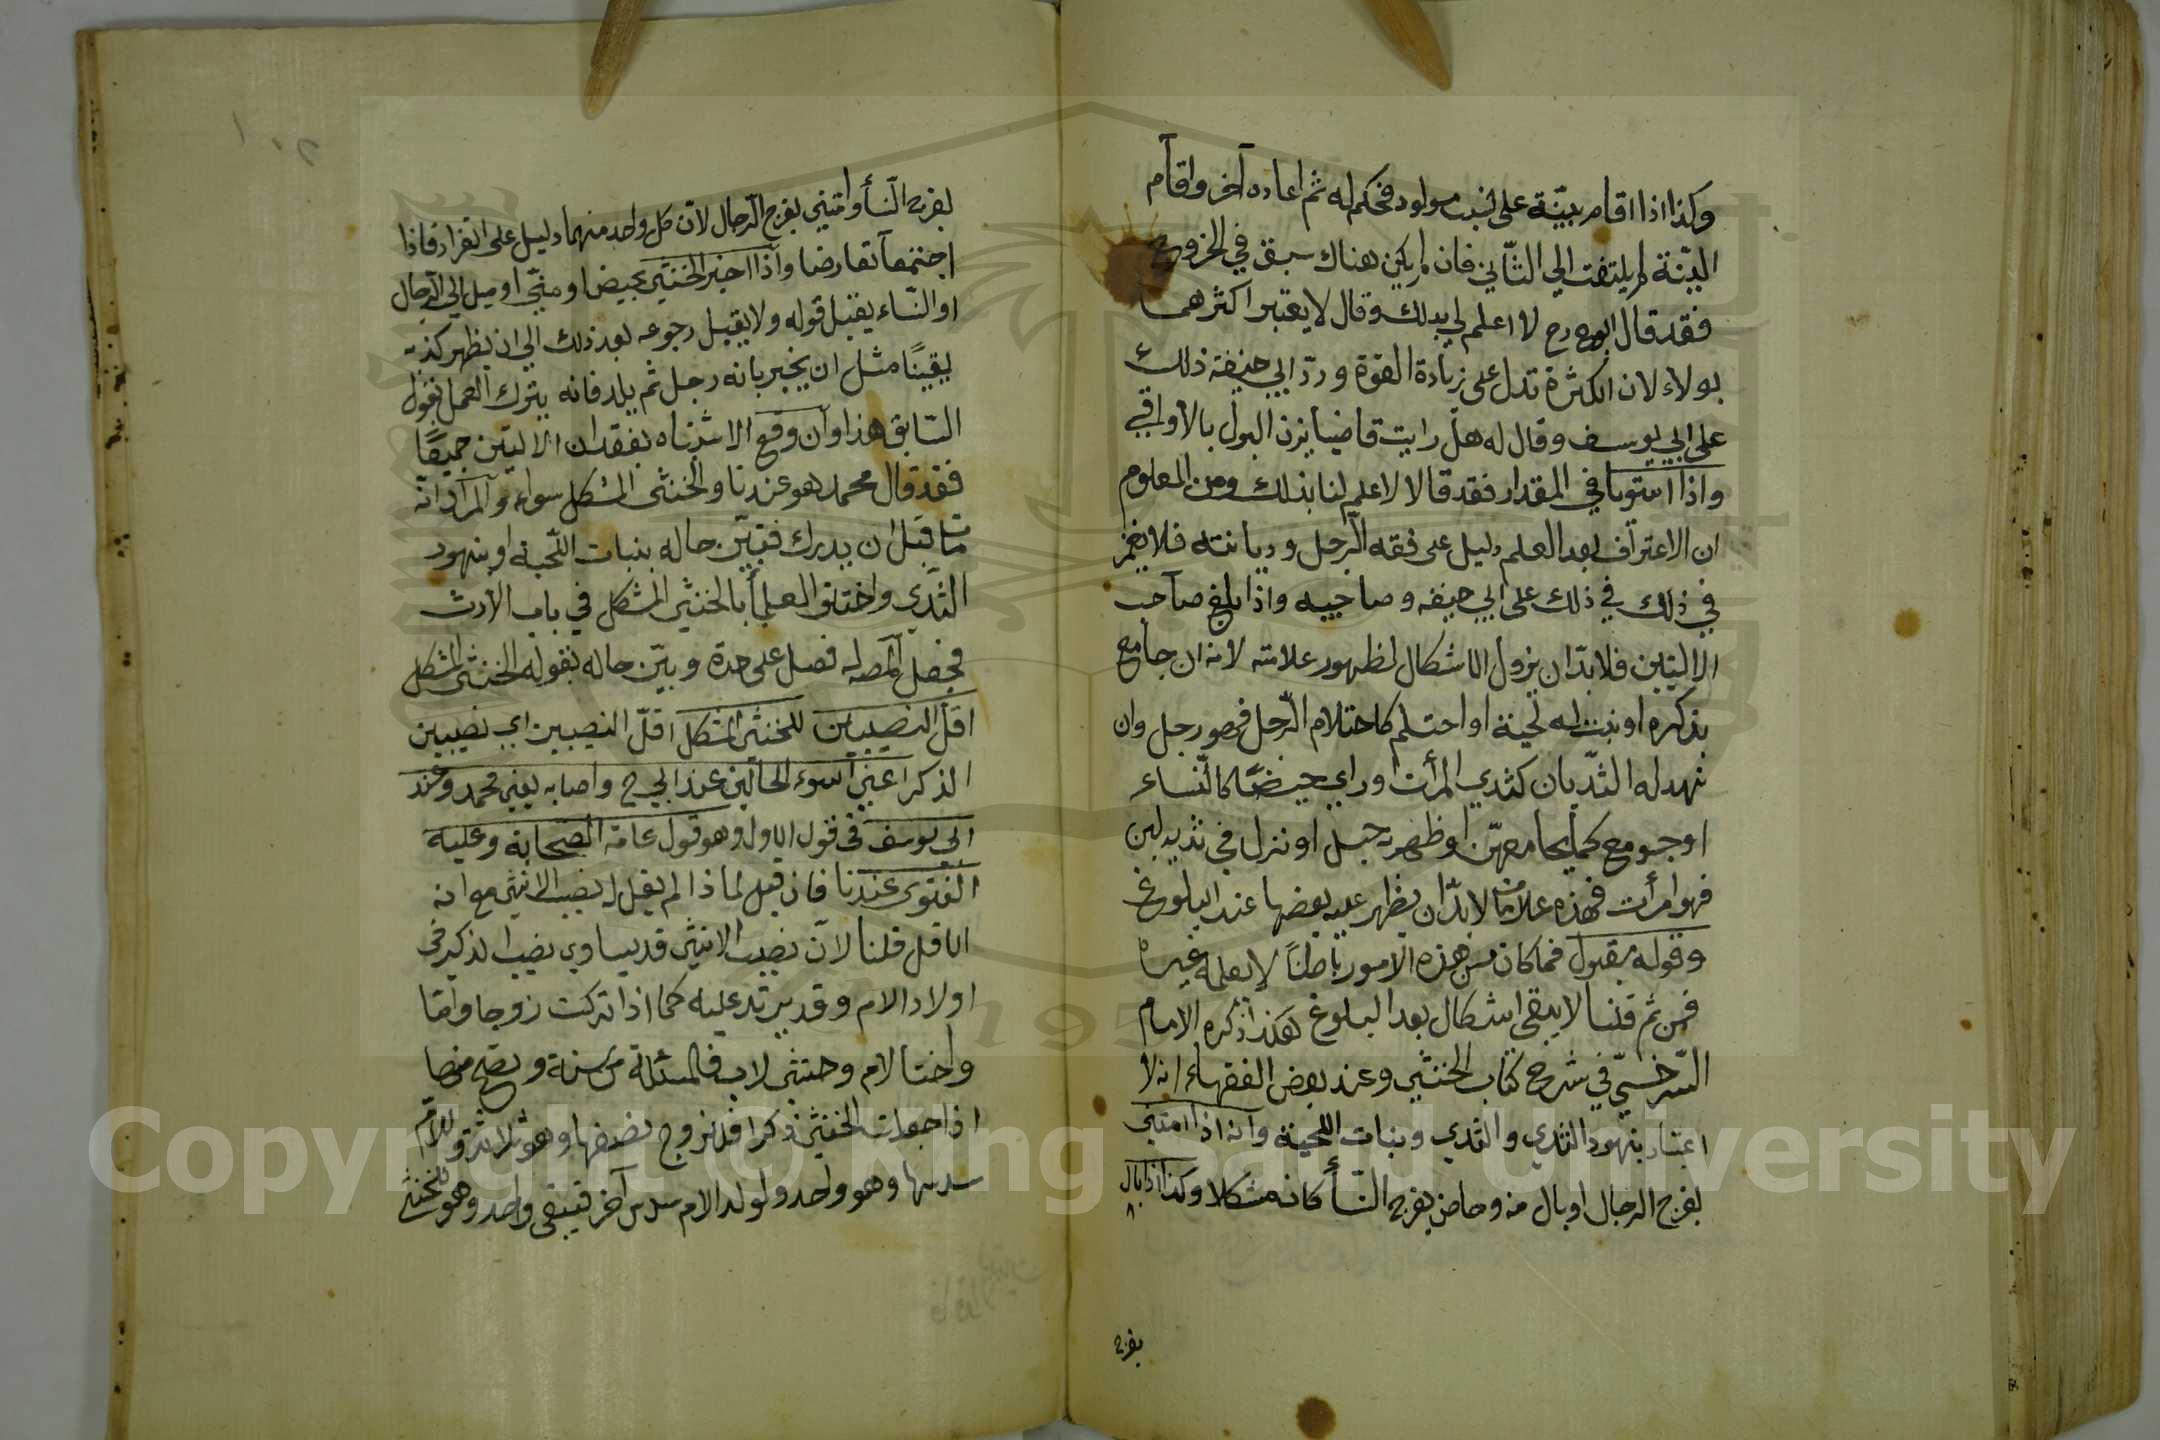 وكذا اذا اقام بيّنة على نسب مولود فحكم له ثم اعاده آخر واقام
البيّنة لم يلتفت الي الثّاني فان لم يكن هناك سبق في الخروج
فقد قال ابو ح رح لا اعلم لي بذلك وقال لا يعتبر اكثرهما
بولاء لان الكثرة تدل على زيادة القوة وردّ ابي حنيفة ذلك
على ابي يوسف وقال له هل رايت قاضيا يزن البول بالاواقي
واذا استويا في المقدار فقد قالا لا علم لنا بذلك ومن المعلوم
ان الاعتراف بعد العلم دليل على فقه الرجل وديانته فلا يغمز
في ذلك في ذلك على ابي حنيفه وصاحبيه واذا بلغ صاحب
الاليتين فلا بدّ ان يزول الاشكال لظهور علامته لانه ان جامع
بذكره او نبت له لحية او احتلم كاحتلام الرّجل فهو رجل وان
نهد له الثدّيان كثدي المرأت او راي حيضًا كالنّساء
او جومع كما يجامعهنّ او ظهر به حبل او نزل في ثديه لبن
فهو امرأت فهذه علامات لا بدّ ان يظهر عليه بعضها عند البلوغ
وقوله مقبول فما كان من هذه الامور باطنًا لا يعلمه غيره
فمن ثم قلنا لا يبقى اشكال بعد البلوغ هكذا ذكره الامام
السّرخسيّ في شرح كتاب الخنثي وعند بعض الفقهاء انه لا
اعتبار بنهود الثدي والثدي وبنات اللحية وانه اذا امني
بفرج الرجال او بال منه وحاض بفرج النّسأ كان مشكلا وكذا اذا بال
بفرج
بفرج النّسأ وامني بفرج الرّجال لان كل واحد منهما دليل على انفراد فاذا
اجتمعا تعارضا واذا اخبر الخنثي بحيض او منيّ او ميل الي الرّجال
او النّساء يقبل قوله ولا يقبل رجوعه بعد ذلك الي ان يظهر كذبه
يقينًا مثل ان يخبر بانه رجل ثم يلد فانه يترك العمل بقوله
السّابق هذا وان وقع الاشتباه بفقدان الاليتين جميعًا
فقد قال محمد هو عندنا والخنثى المشكل سواء والمراد انّه
مات قبل ان يدرك فتبيّن حاله بنبات اللّحية او بنهود
الثّدى واختلف العلمأ بالخنثي المشكل في باب الارث
فجعل المص له فصل على حدة وبيّن حاله بقوله الخنثى المشكل
اقلّ النصيبين للخنثى المشكل اقلّ النصيبين اي نصيبين
الذكر اعني اسوء الحالين عند ابي ح واصحابه يعني محمد وعند
ابي يوسف في قول الاول وهو قول عامة الصّحابة وعليه
الفتوى عندنا فان قيل لماذا لم يقل له نصيب الانثي مع انه
الاقل قلنا لانّ نصيب الانثى قد يساوي نصيب الذكر في
اولاد الام وقد يزيد عليه كما اذا تركت زوجا وامّا
واختا لام وخنثى لاب فالمسئلة من ستة وتصح منها
اذا جعلت الخنثى ذكرا فللزوج نصفها وهو ثلاثة وللامّ
سدسها وهو واحد ولولد الام سدس آخر فيبقى واحد وهو للخنثى
Copyright © King Saud University